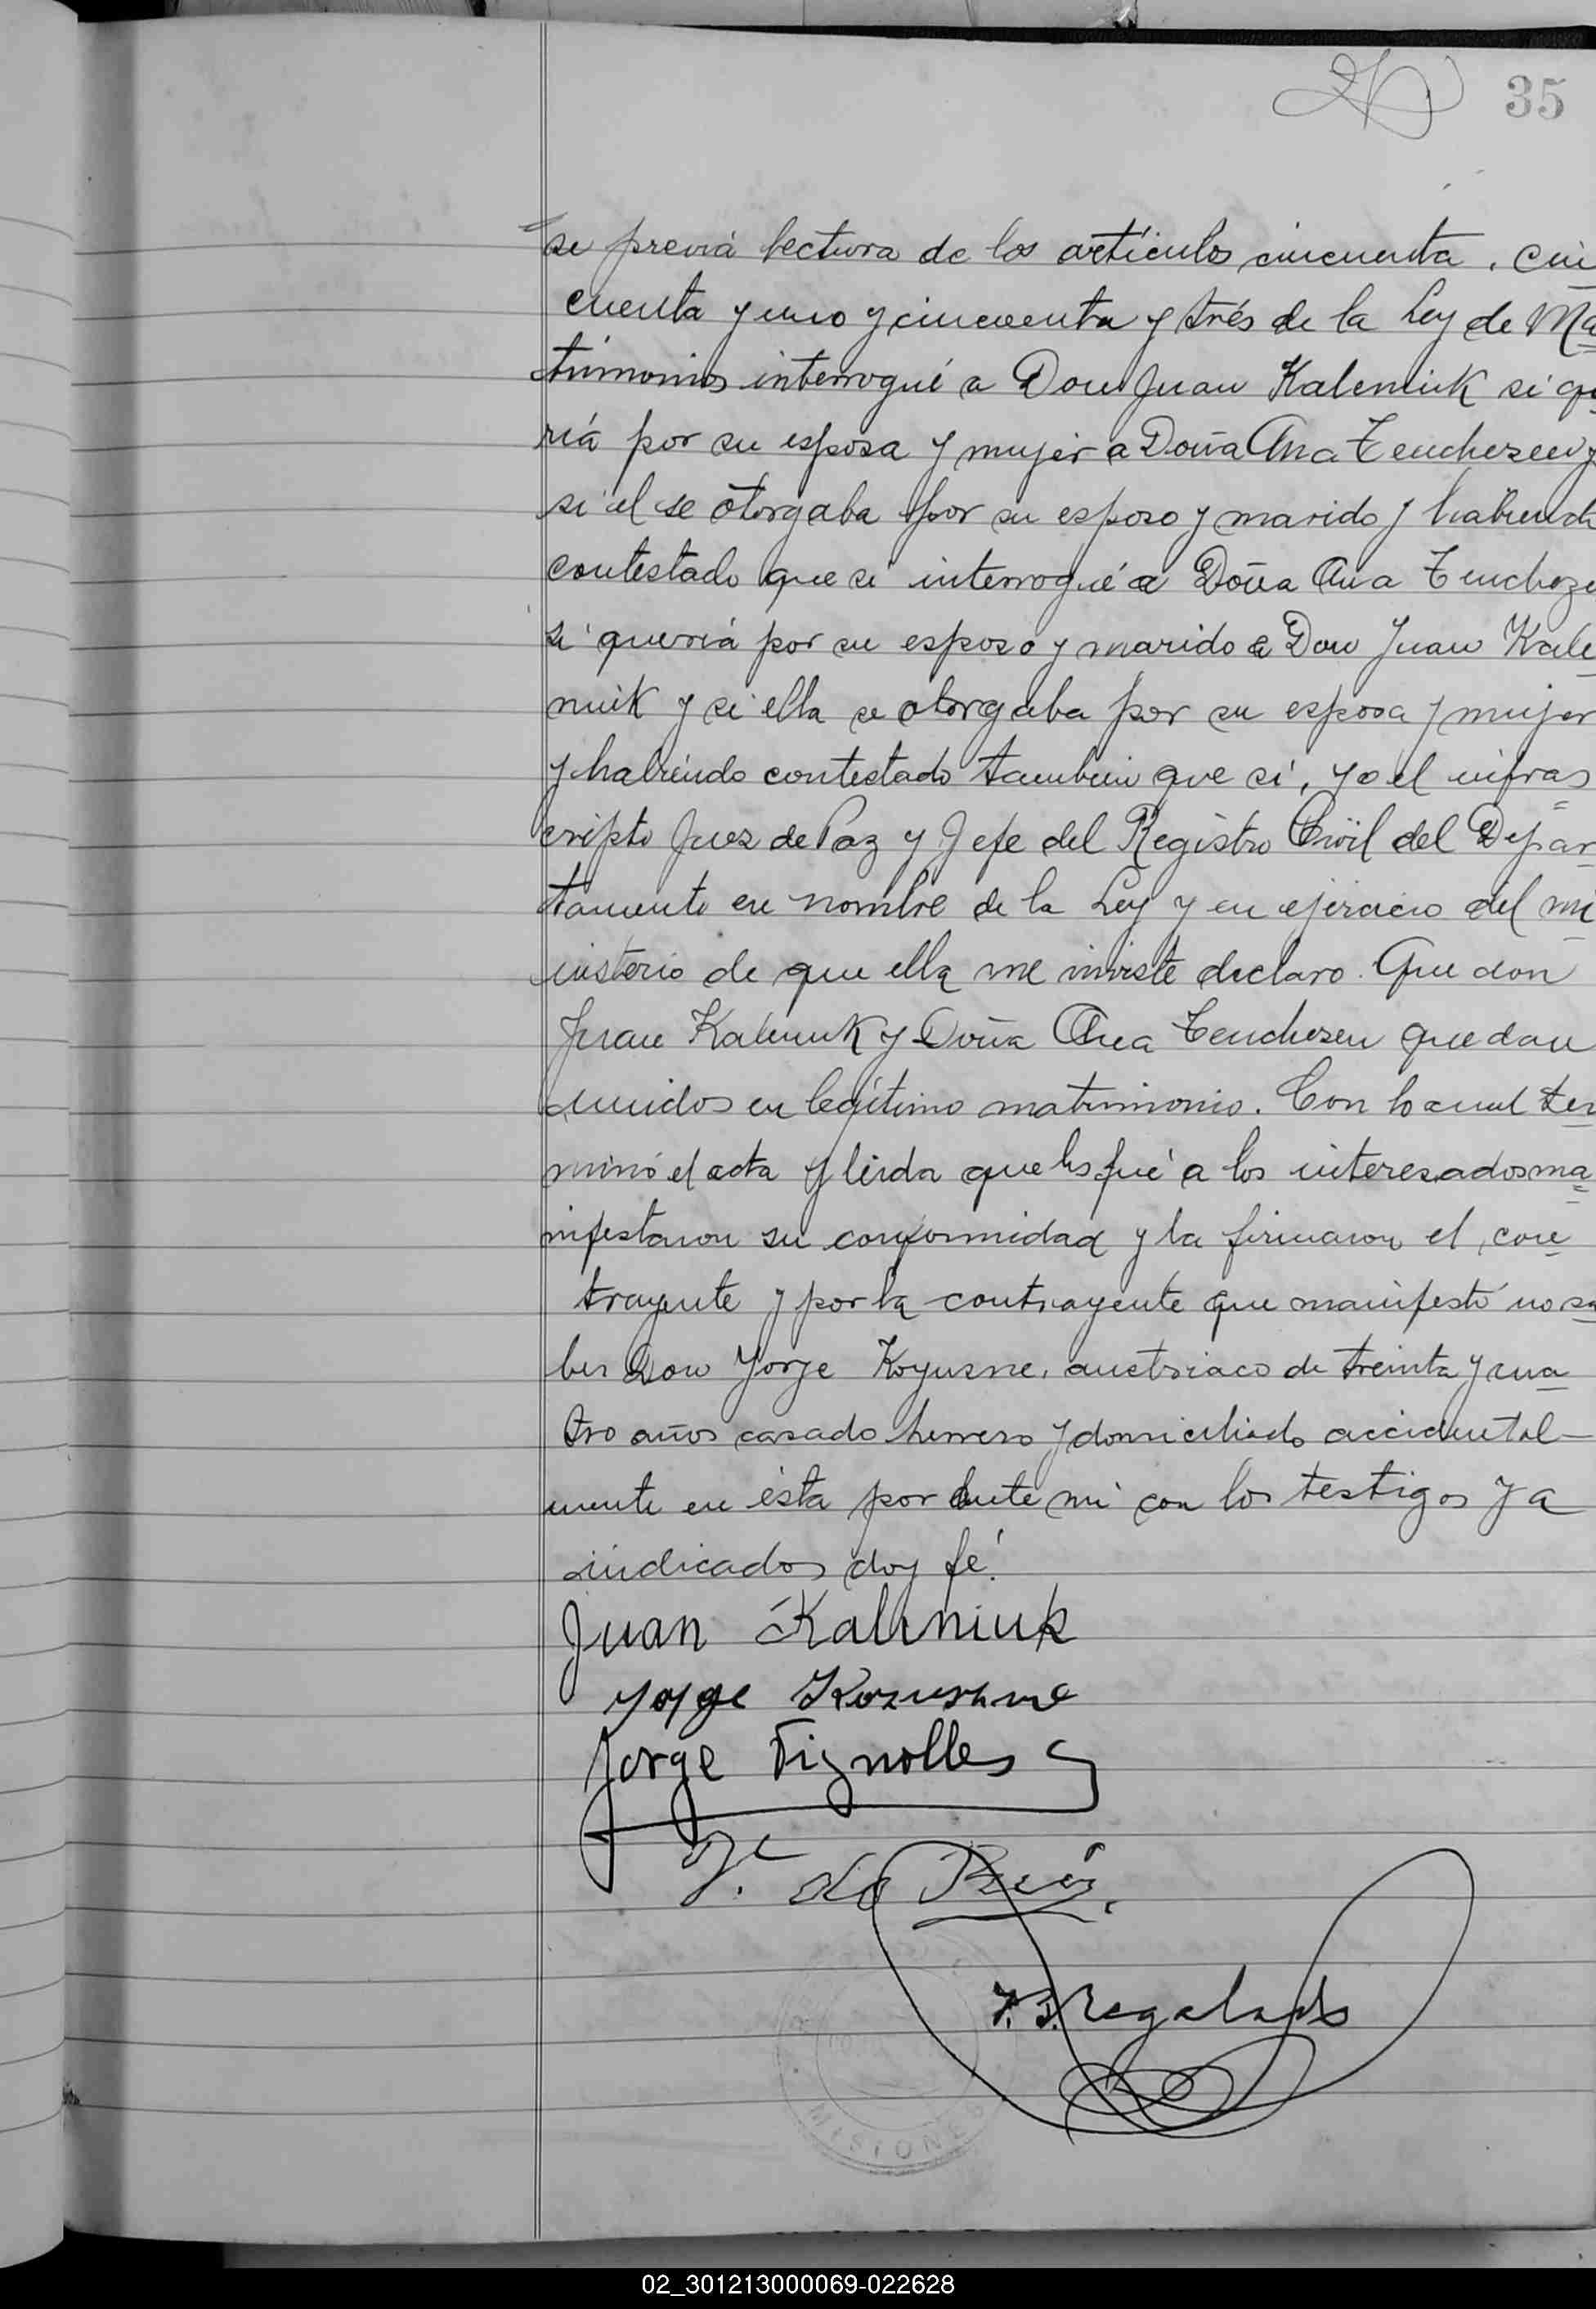 35
se previá lectura de los artículos cincuenta, cin
cuenta y uno y cincuenta y trés de la Ley de Ma
trimonios interrogué a Don Juan Kaleniuk si que
riá por su esposa y mujer a Doña Ana Tenchezen y
si el se otorgaba por su esposo y marido y habiendo
contestado que si interrogué a Doña Ana Tencheze
si queriá por su esposo y marido a Don Juan Kale
niuk y si ella se otorgaba por su esposa y mujer
y habiendo contestado tambien que si, yo el infras
cripto Juez de Paz y Jefe del Registro Civil del Depar
tamento en nombre de la Ley y en ejercicio del mi
nisterio de que ella me inviste declaro. Que don
Juan Kaleniuk y Doña Ana Tenchezen quedan
unidos en legítimo matrimonio. Con lo cual ter
minó el acta y leida que les fué a los interesados ma
nifestaron su conformidad y la firmaron el con
trayente y por la contrayente que manifestó no sa
ber Don Jorge Kozusne, austriaco de treinta y cua
tro años casado herrero y domiciliado accidental-
mente en ésta por ante mi con los testigos ya
indicados doy fé.
Juan Kaliniuk
Yorge Kozusne
Jorge Fignolles
de
Regalado
MISIONES
02_301213000069-022628